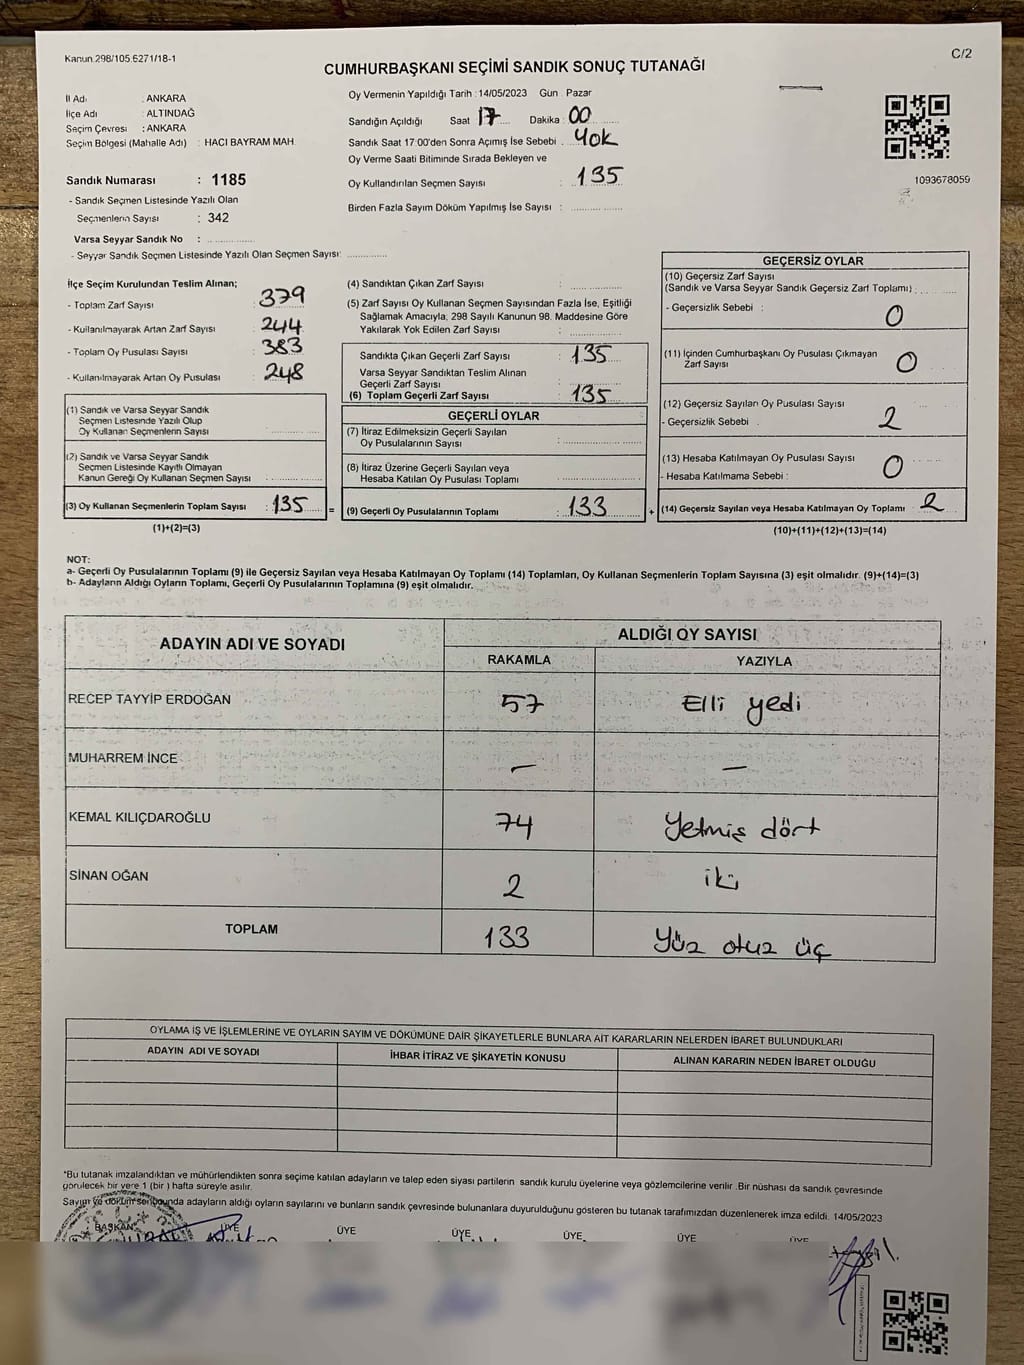 Kanun.298/105.6271/18-1
C/2
CUMHURBAŞKANI SEÇİMİ SANDIK SONUÇ TUTANAĞI
İl Adı : ANKARA
İlçe Adı : ALTINDAĞ
Seçim Çevresi : ANKARA
Seçim Bölgesi (Mahalle Adı) : HACI BAYRAM MAH.
Sandık Numarası : 1185
- Sandık Seçmen Listesinde Yazılı Olan
Seçmenlerin Sayısı : 342
Varsa Seyyar Sandık No :
- Seyyar Sandık Seçmen Listesinde Yazılı Olan Seçmen Sayısı:
Oy Vermenin Yapıldığı Tarih : 14/05/2023 Gün : Pazar
Sandığın Açıldığı Saat 17 Dakika : 00
Sandık Saat 17:00'den Sonra Açımış İse Sebebi : Yok
Oy Verme Saati Bitiminde Sırada Bekleyen ve
Oy Kullandırılan Seçmen Sayısı : 135
Birden Fazla Sayım Döküm Yapılmış İse Sayısı :
1093678059
İlçe Seçim Kurulundan Teslim Alınan;
- Toplam Zarf Sayısı : 379
- Kullanılmayarak Artan Zarf Sayısı : 244
- Toplam Oy Pusulası Sayısı : 383
- Kullanılmayarak Artan Oy Pusulası : 248
(1) Sandık ve Varsa Seyyar Sandık
Seçmen Listesinde Yazılı Olup
Oy Kullanan Seçmenlerin Sayısı
(2) Sandık ve Varsa Seyyar Sandık
Seçmen Listesinde Kayıtlı Olmayan
Kanun Gereği Oy Kullanan Seçmen Sayısı
(3) Oy Kullanan Seçmenlerin Toplam Sayısı : 135 =
(1)+(2)=(3)
(4) Sandıktan Çıkan Zarf Sayısı :
(5) Zarf Sayısı Oy Kullanan Seçmen Sayısından Fazla İse, Eşitliği
Sağlamak Amacıyla, 298 Sayılı Kanunun 98. Maddesine Göre
Yakılarak Yok Edilen Zarf Sayısı :
Sandıkta Çıkan Geçerli Zarf Sayısı : 135
Varsa Seyyar Sandıktan Teslim Alınan
Geçerli Zarf Sayısı :
(6) Toplam Geçerli Zarf Sayısı : 135
GEÇERLİ OYLAR
(7) İtiraz Edilmeksizin Geçerli Sayılan
Oy Pusulalarının Sayısı :
(8) İtiraz Üzerine Geçerli Sayılan veya
Hesaba Katılan Oy Pusulası Toplamı :
(9) Geçerli Oy Pusulalarının Toplamı : 133 +
GEÇERSİZ OYLAR
(10) Geçersiz Zarf Sayısı
(Sandık ve Varsa Seyyar Sandık Geçersiz Zarf Toplamı) :
- Geçersizlik Sebebi : 0
(11) İçinden Cumhurbaşkanı Oy Pusulası Çıkmayan
Zarf Sayısı 0
(12) Geçersiz Sayılan Oy Pusulası Sayısı
- Geçersizlik Sebebi : 2
(13) Hesaba Katılmayan Oy Pusulası Sayısı
- Hesaba Katılmama Sebebi : 0
(14) Geçersiz Sayılan veya Hesaba Katılmayan Oy Toplamı : 2
(10)+(11)+(12)+(13)=(14)
NOT:
a- Geçerli Oy Pusulalarının Toplamı (9) ile Geçersiz Sayılan veya Hesaba Katılmayan Oy Toplamı (14) Toplamları, Oy Kullanan Seçmenlerin Toplam Sayısına (3) eşit olmalıdır. (9)+(14)=(3)
b- Adayların Aldığı Oyların Toplamı, Geçerli Oy Pusulalarının Toplamına (9) eşit olmalıdır.
ADAYIN ADI VE SOYADI ALDIĞI OY SAYISI
RAKAMLA YAZIYLA
RECEP TAYYİP ERDOĞAN 57 Elli yedi
MUHARREM İNCE – –
KEMAL KILIÇDAROĞLU 74 Yetmiş dört
SİNAN OĞAN 2 iki
TOPLAM 133 Yüz otuz üç
OYLAMA İŞ VE İŞLEMLERİNE VE OYLARIN SAYIM VE DÖKÜMÜNE DAİR ŞİKAYETLERLE BUNLARA AİT KARARLARIN NELERDEN İBARET BULUNDUKLARI
ADAYIN ADI VE SOYADI İHBAR İTİRAZ VE ŞİKAYETİN KONUSU ALINAN KARARIN NEDEN İBARET OLDUĞU
*Bu tutanak imzalandıktan ve mühürlendikten sonra seçime katılan adayların ve talep eden siyasi partilerin sandık kurulu üyelerine veya gözlemcilerine verilir. Bir nüshası da sandık çevresinde
görülecek bir yere 1 (bir) hafta süreyle asılır.
Sayım ve döküm sonunda adayların aldığı oyların sayılarını ve bunların sandık çevresinde bulunanlara duyurulduğunu gösteren bu tutanak tarafımızdan düzenlenerek imza edildi. 14/05/2023
BAŞKAN ÜYE ÜYE ÜYE ÜYE ÜYE ÜYE